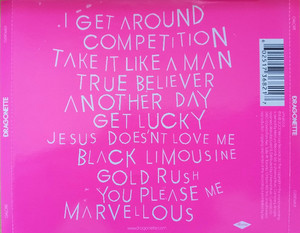 I GET AROUND
COMPETITION
TAKE IT LIKE A MAN
TRUE BELIEVER
ANOTHER DAY
GET LUCKY
JESUS DOESN'T LOVE ME
BLACK LIMOUSINE
GOLD RUSH
YOU PLEASE ME
MARVELLOUS
DRAGONETTE
DRAGONETTE